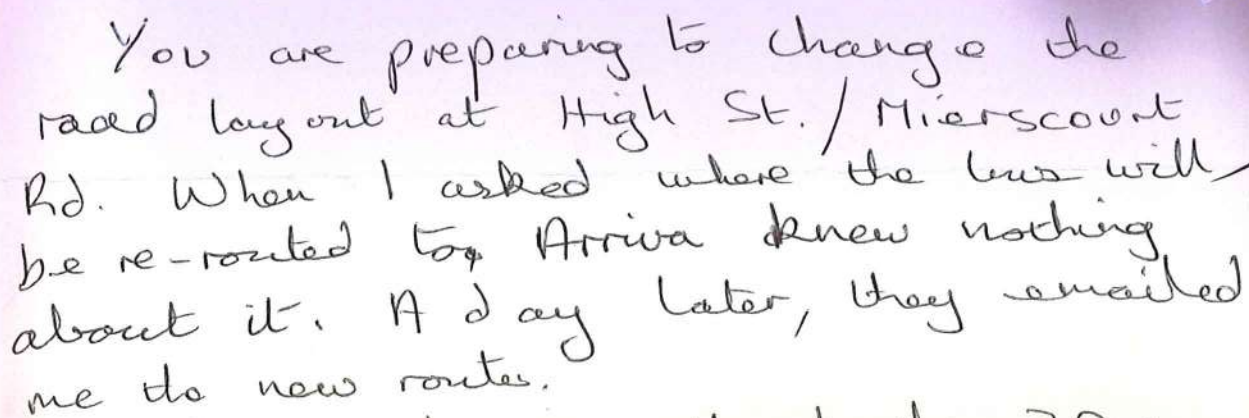 You are preparing to change the
road layout at High St. / Mierscourt
Rd. When I asked where the bus will
be re-routed to, Arriva knew nothing
about it. A day later, they emailed
me the new routes.